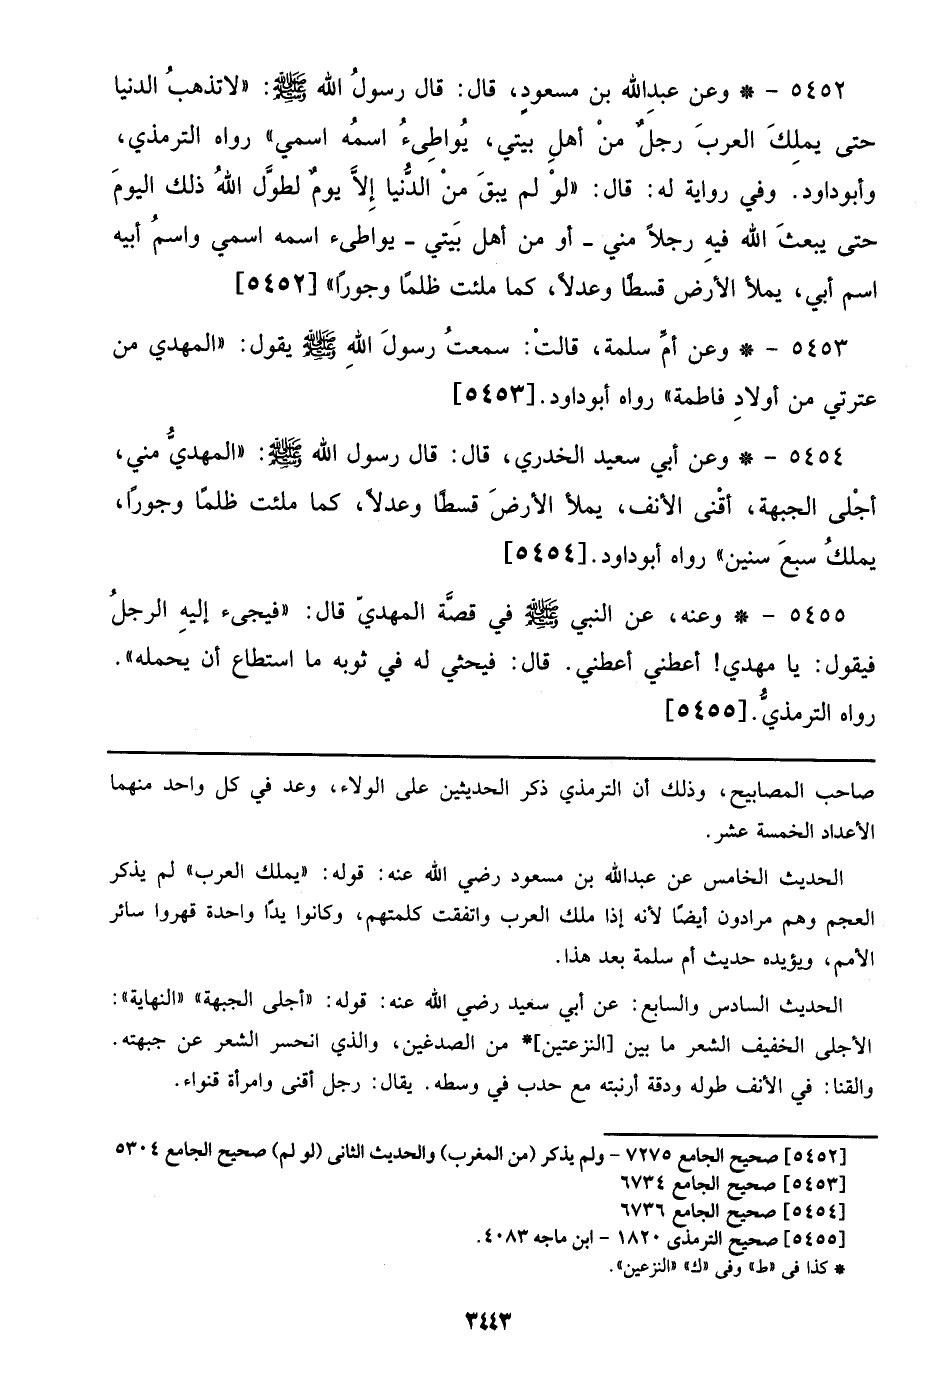 ٥٤٥٢ – * وعن عبدِالله بن مسعودٍ، قال: قال رسولُ الله ﷺ: «لاتذهبُ الدنيا
حتى يملِكَ العربَ رجلٌ منْ أهلِ بيتي، يُواطِىءُ اسمُه اسمي» رواه الترمذي،
وأبوداود. وفي رواية له: قال: «لوْ لم يبقَ منْ الدُّنيا إلاَّ يومٌ لطوَّل اللهُ ذلك اليومَ
حتى يبعثَ الله فيهِ رجلاً مني ـ أو من أهل بَيتي ـ يواطىء اسمه اسمي واسمُ أبيه
اسم أبي، يملأ الأرض قسطًا وعدلاً، كما ملئت ظلمًا وجورًا» [٥٤٥٢]
٥٤٥٣ – * وعن أمِّ سلمة، قالتْ: سمعتُ رسولَ اللهِ ﷺ يقول: «المهدي من
عترتي من أولادِ فاطمة» رواه أبوداود. [٥٤٥٣]
٥٤٥٤ – * وعن أبي سعيد الخدري، قال: قال رسول الله ﷺ: «المهديُّ مني،
أجْلى الجبهة، أقْنى الأنف، يملأ الأرضَ قسطًا وعدلاً، كما ملئت ظلمًا وجورًا،
يملكُ سبعَ سنين» رواه أبوداود. [٥٤٥٤]
٥٤٥٥ – * وعنه، عن النبي ﷺ في قصَّة المهديّ قال: «فيجىء إليهِ الرجلُ
فيقول: يا مهدي! أعطني أعطني. قال: فيحثي له في ثوبه ما استطاع أن يحمله».
رواه الترمذيُّ. [٥٤٥٥]
صاحب المصابيح، وذلك أن الترمذي ذكر الحديثين على الولاء، وعد في كل واحد منهما
الأعداد الخمسة عشر.
الحديث الخامس عن عبدالله بن مسعود رضي الله عنه: قوله: «يملك العرب» لم يذكر
العجم وهم مرادون أيضًا لأنه إذا ملك العرب واتفقت كلمتهم، وكانوا يدًا واحدة قهروا سائر
الأمم، ويؤيده حديث أم سلمة بعد هذا.
الحديث السادس والسابع: عن أبي سعيد رضي الله عنه: قوله: «أجلى الجبهة» «النهاية»:
الأجلى الخفيف الشعر ما بين [النزعتين]* من الصدغين، والذي انحسر الشعر عن جبهته.
والقنا: في الأنف طوله ودقة أرنبته مع حدب في وسطه. يقال: رجل أقنى وامرأة قنواء.
[٥٤٥٢] صحيح الجامع ٧٢٧٥ – ولم يذكر (من المغرب) والحديث الثانى (لو لم) صحيح الجامع ٥٣٠٤
[٥٤٥٣] صحيح الجامع ٦٧٣٤
[٥٤٥٤] صحيح الجامع ٦٧٣٦
[٥٤٥٥] صحيح الترمذى ١٨٢٠ – ابن ماجه ٤٠٨٣.
* كذا فى «ط» وفى «ك» «النزعين».
٣٤٤٣